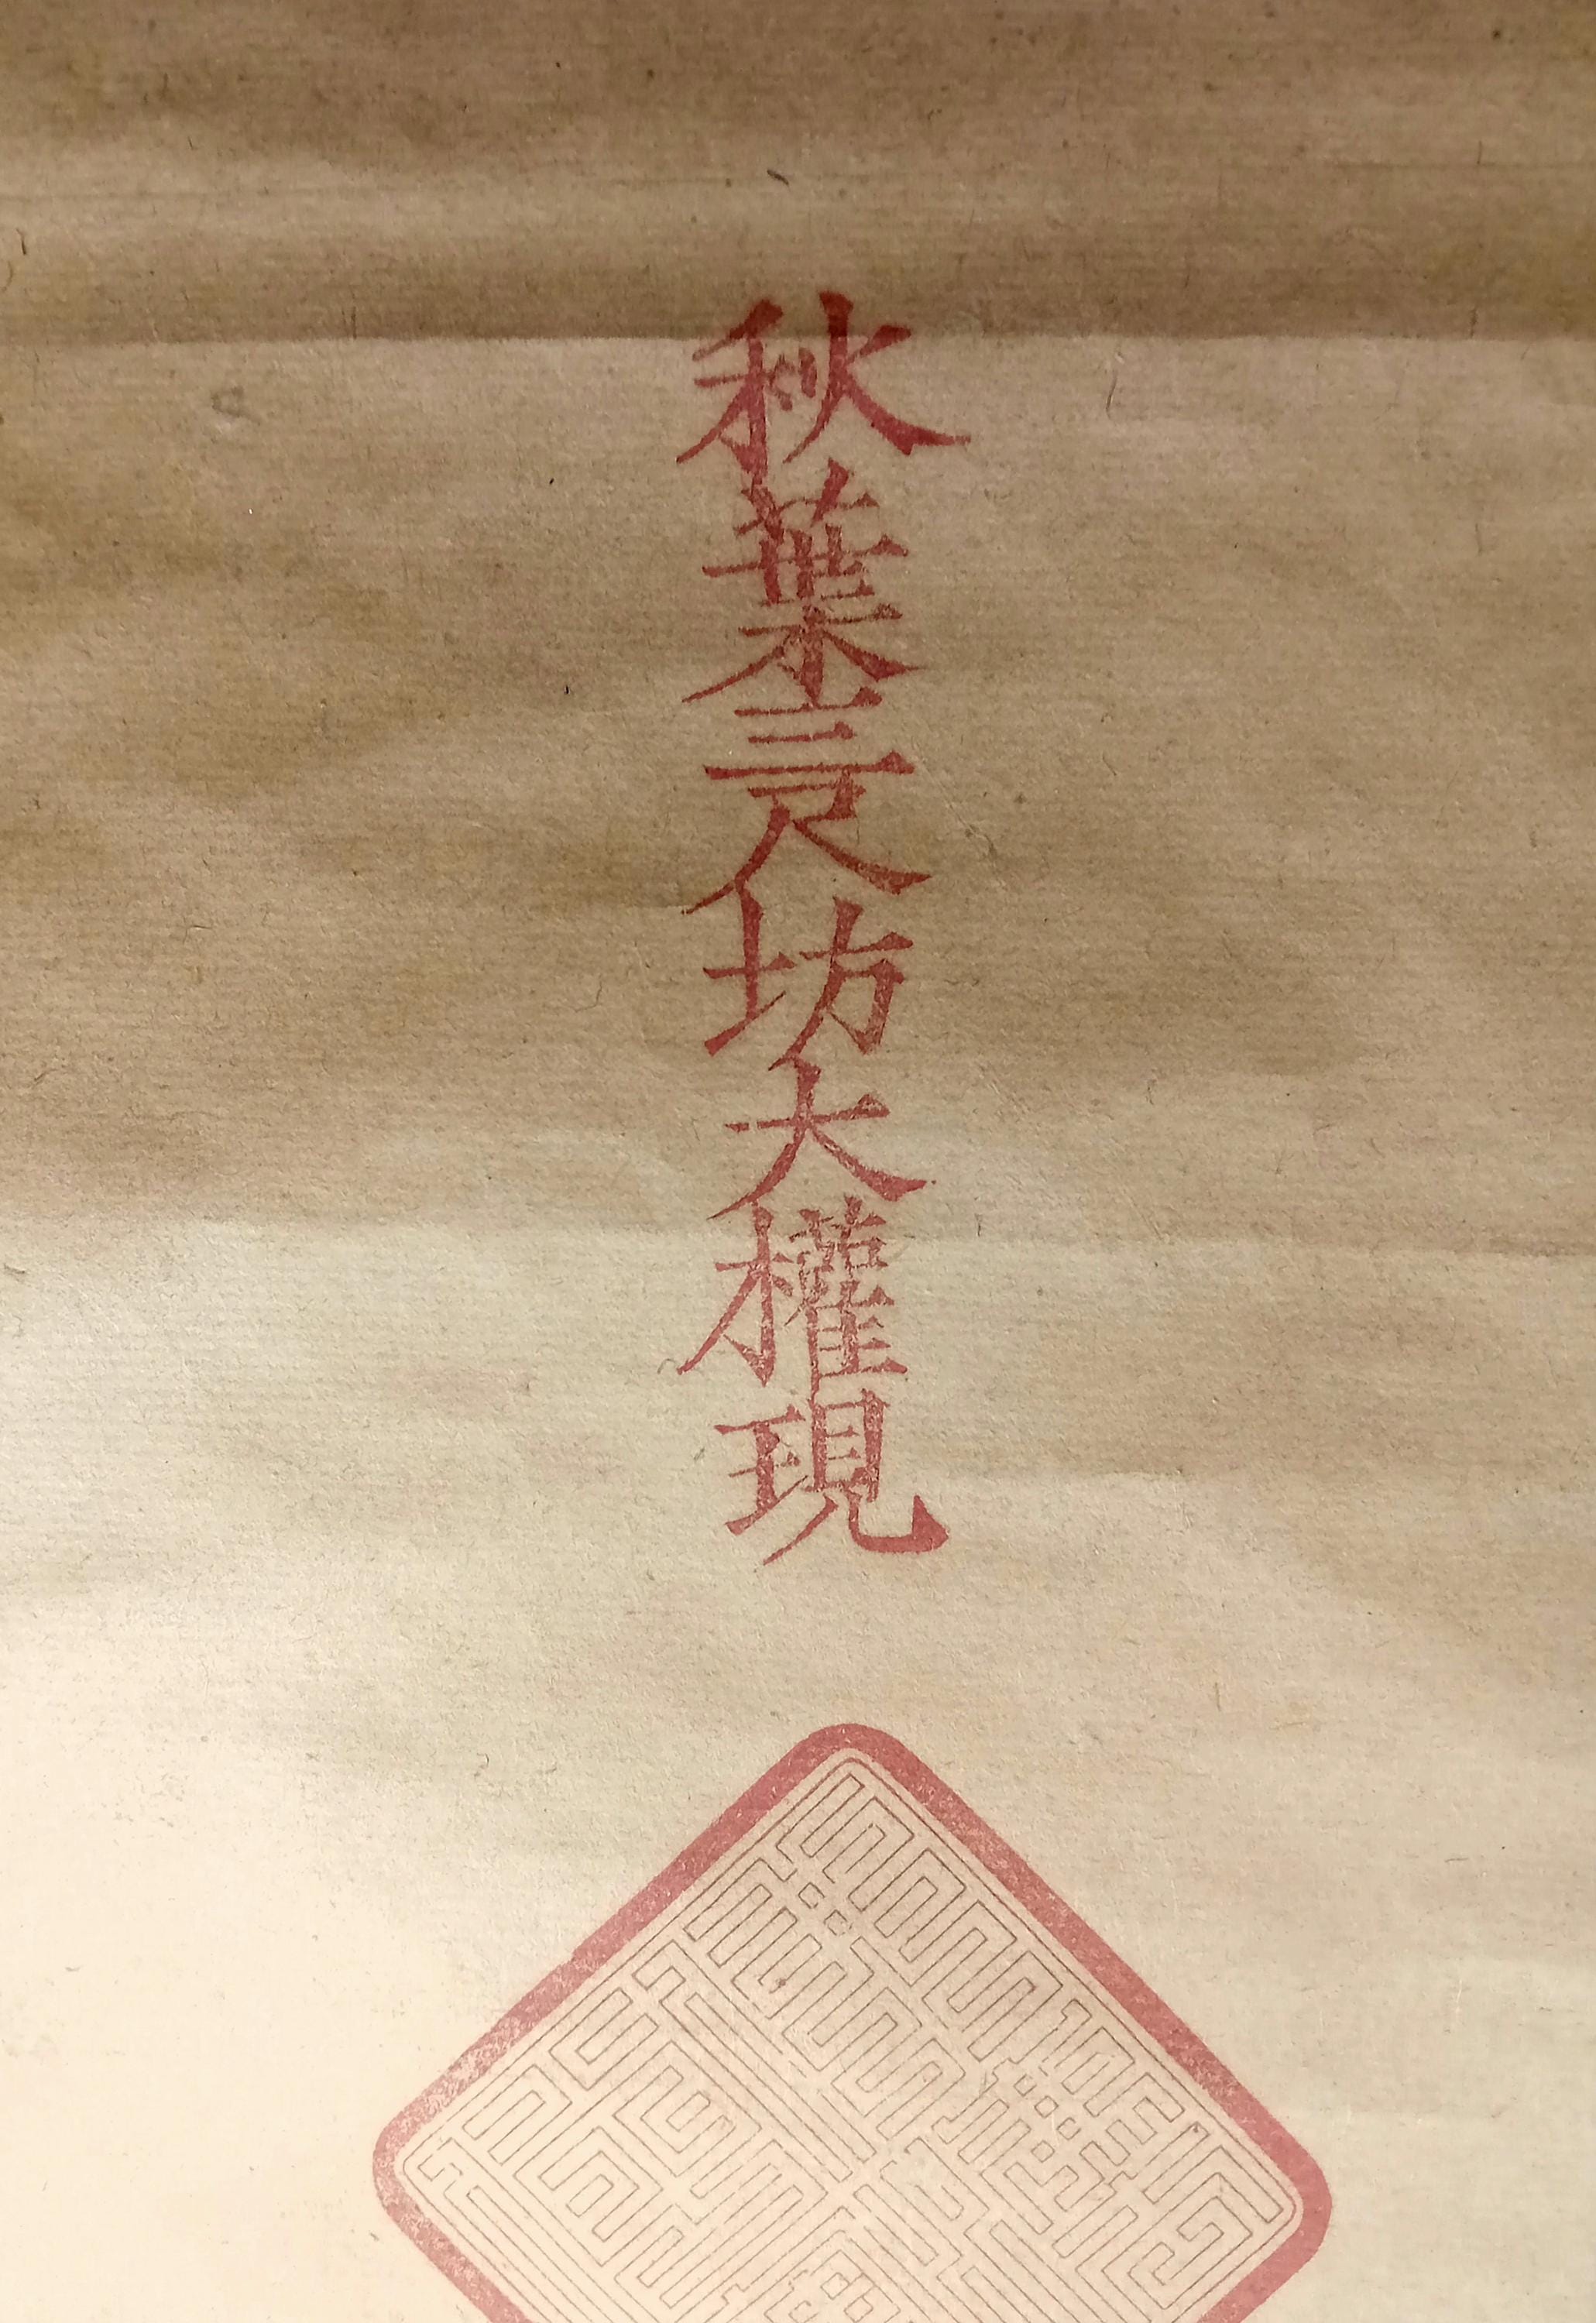 秋葉三尺坊大權現